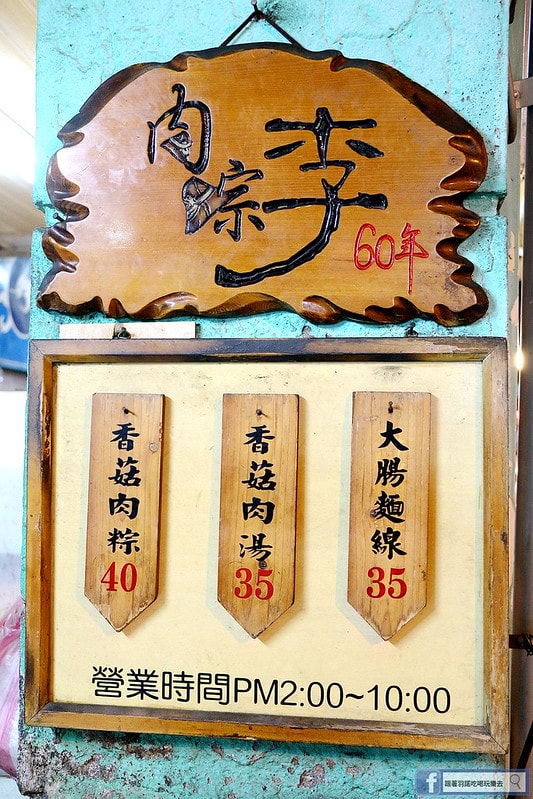 李
肉粽
60年
香菇肉粽
40
香菇肉湯
35
大腸麵線
35
營業時間PM2:00~10:00
跟著羽諾吃喝玩樂去